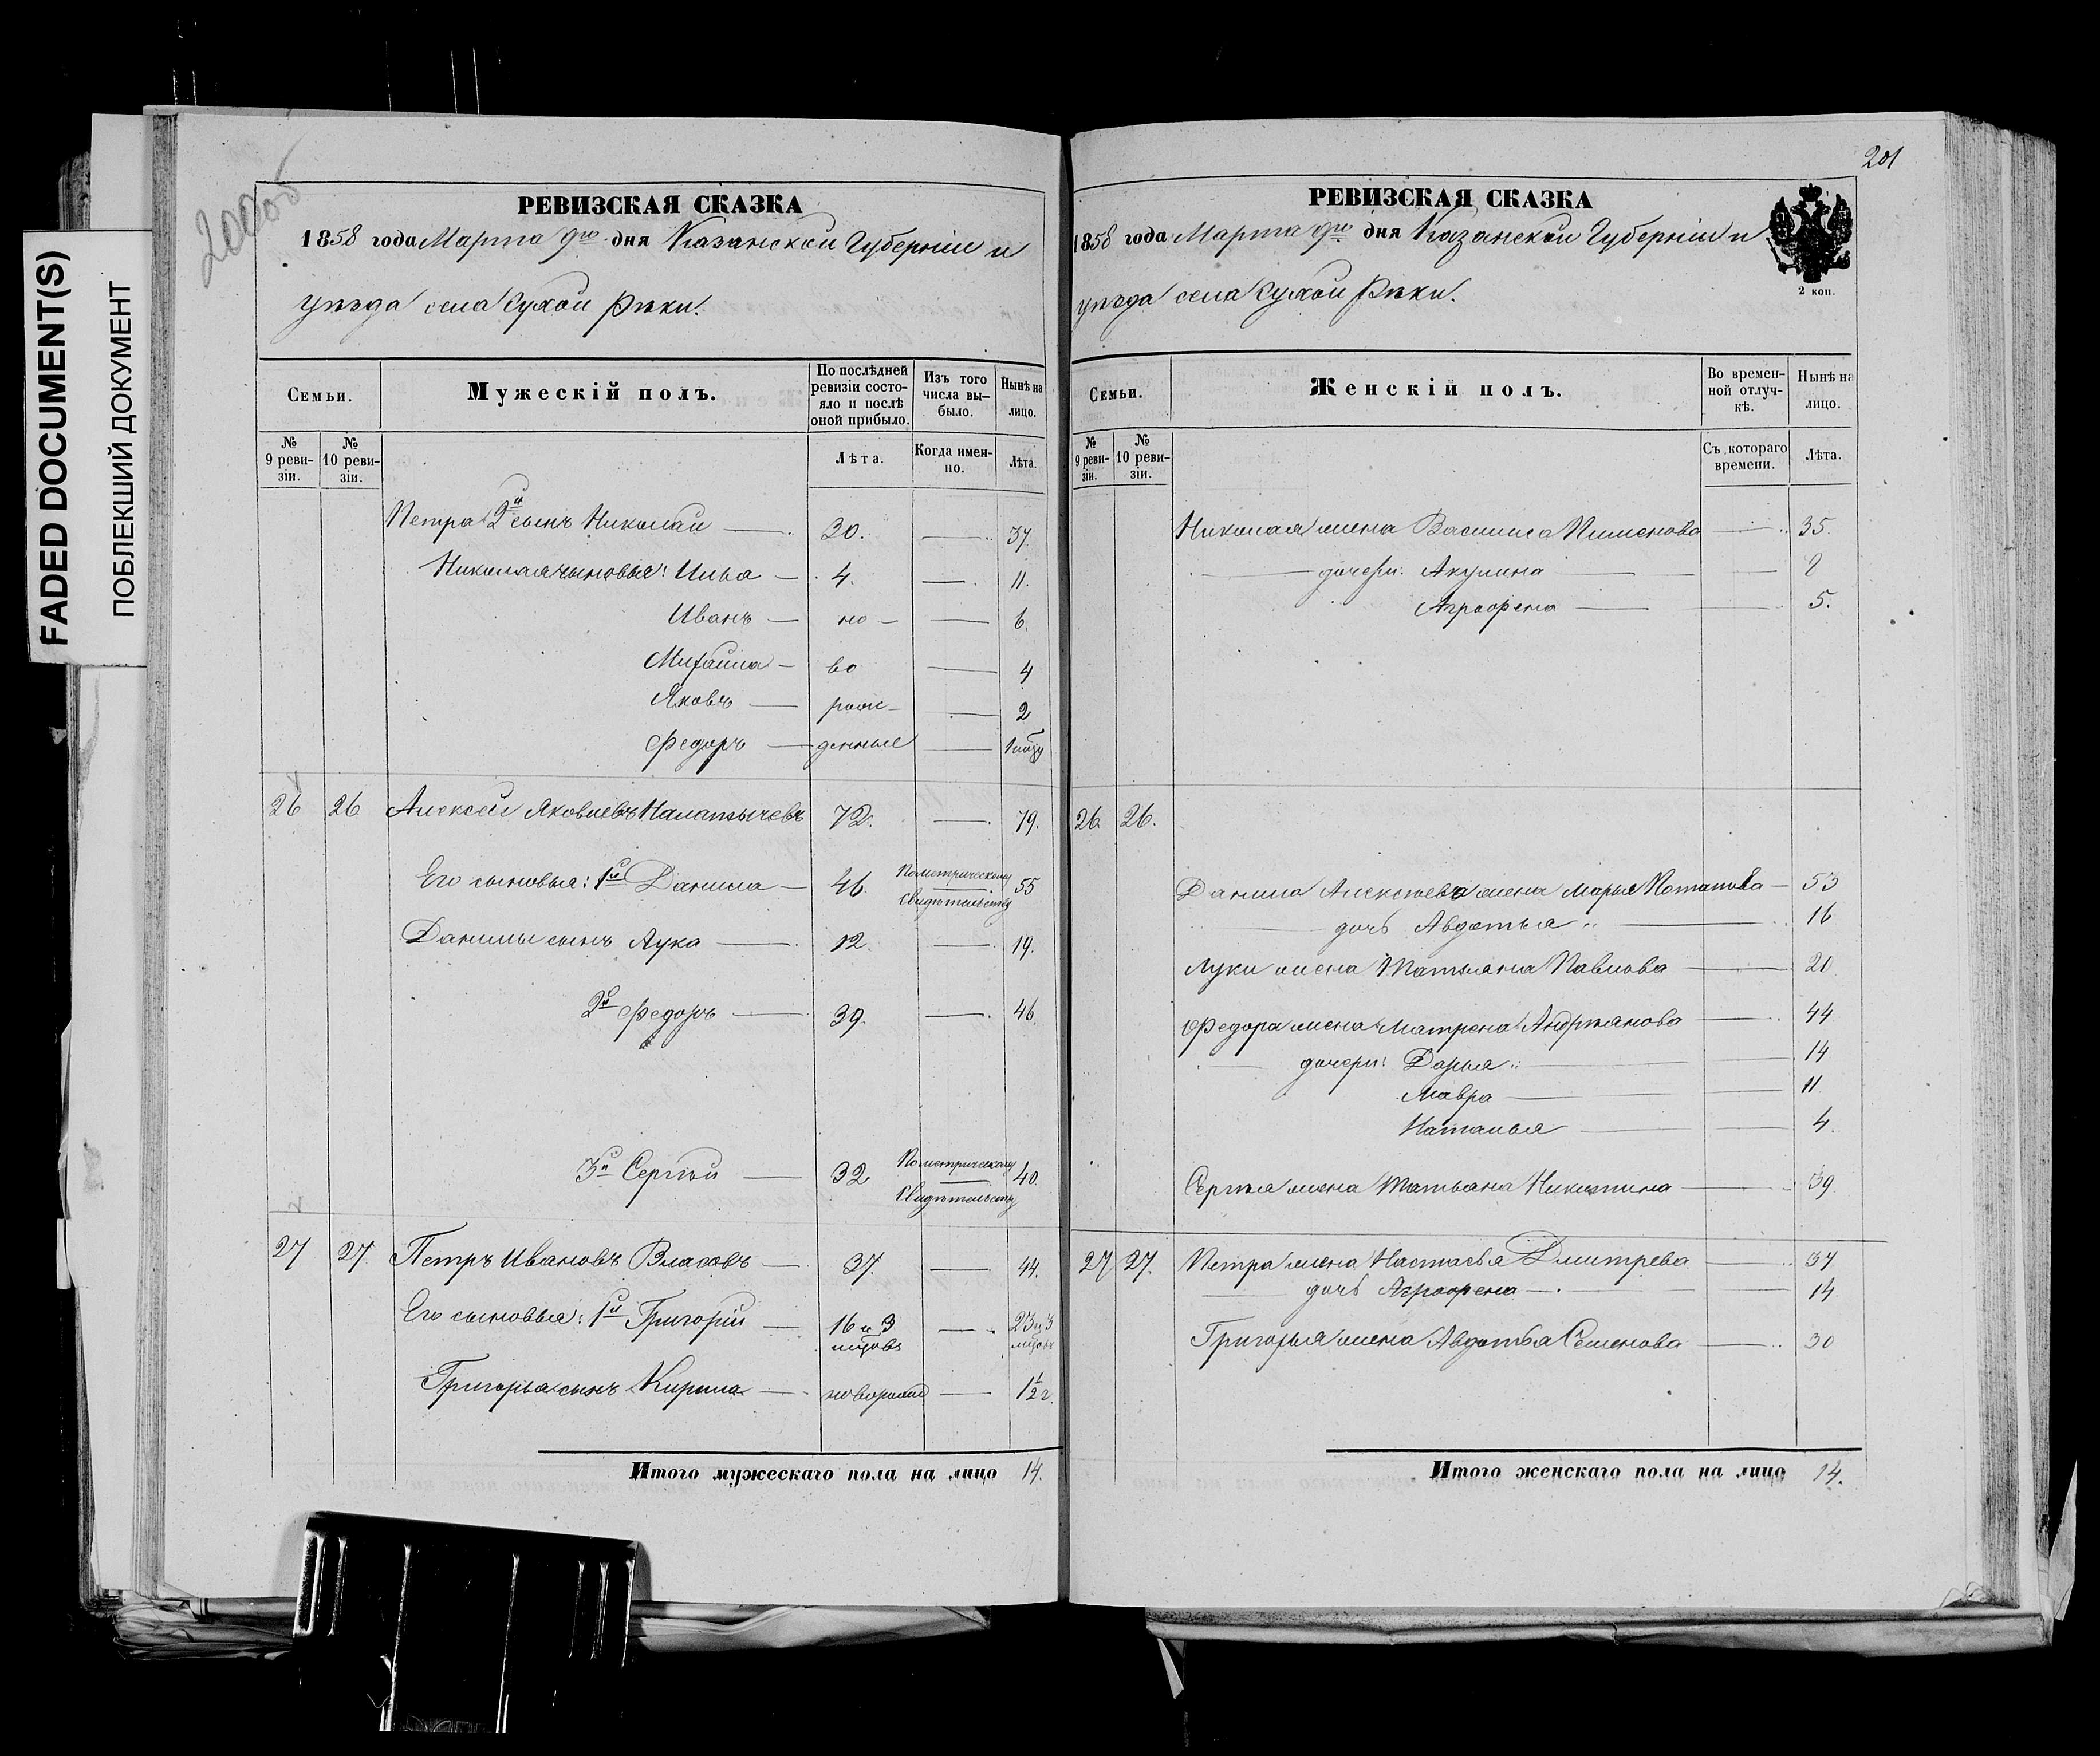 FADED DOCUMENT(S)
ПОБЛЕКШИЙ ДОКУМЕНТ
200об
РЕВИЗСКАЯ СКАЗКА
1858 года Марта 9го дня Казанской Губерніи и
уѣзда села Сухой Рѣки.
Семьи.
Мужескій полъ.
По послѣдней ревизіи состо-яло и послѣ оной прибыло.
Изъ того числа вы-было.
Нынѣ на лицо.
№ 9 реви-зіи.
№ 10 реви-зіи.
Лѣта.
Когда имен-но.
Лѣта.
Петра 2й сынъ Николай — 30. — 37.
Николая сыновья: Илья — 4. — 11.
Иванъ — но — — 6.
Михайла — во — 4
Яковъ — рож — — 2
Федоръ — денные — 1
26 26 Алексей Яковлевъ Налатычевъ 72. — 79.
Его сыновья: 1й Данила — 46. По метрическому свидѣтельству 55
Данилы сынъ Лука — 12. — 19.
2й Федоръ — 39. — 46.
3й Сергѣй — 32 По метрическому свидѣтельству 40.
27 27. Петръ Ивановъ Власовъ — 37. — 44.
Его сыновья: 1й Григорій — 16 и 3 мцовъ — 23 и 3 мцовъ
Григорья сынъ Кирила — новорожд — 1 1/2 г.
Итого мужескаго пола на лицо 14.
201
РЕВИЗСКАЯ СКАЗКА
1858 года Марта 9го дня Казанской Губерніи и
уѣзда села Сухой Рѣки.
2 коп.
Семьи.
Женскій полъ.
Во времен-ной отлуч-кѣ.
Нынѣ на лицо.
№ 9 реви-зіи.
№ 10 реви-зіи.
Съ котораго времени.
Лѣта.
Николая жена Василиса Пименова — 35.
— дочери: Акулина —
Аграфена — 5.
26. 26.
Данила Алексѣева жена Марья Потапова — 53
дочь Авдотья — 16
Луки жена Татьяна Павлова — 20
Федора жена Матрена Андрѣянова — 44
— дочери: Дарья — 14
Мавра — 11
Наталья — 4.
Сергѣя жена Татьяна Никитина — 39
27 27. Петра жена Настасья Дмитрева — 37
— дочь Аграфена — 14
Григорья жена Авдотья Семенова — 30
Итого женскаго пола на лицо 14.